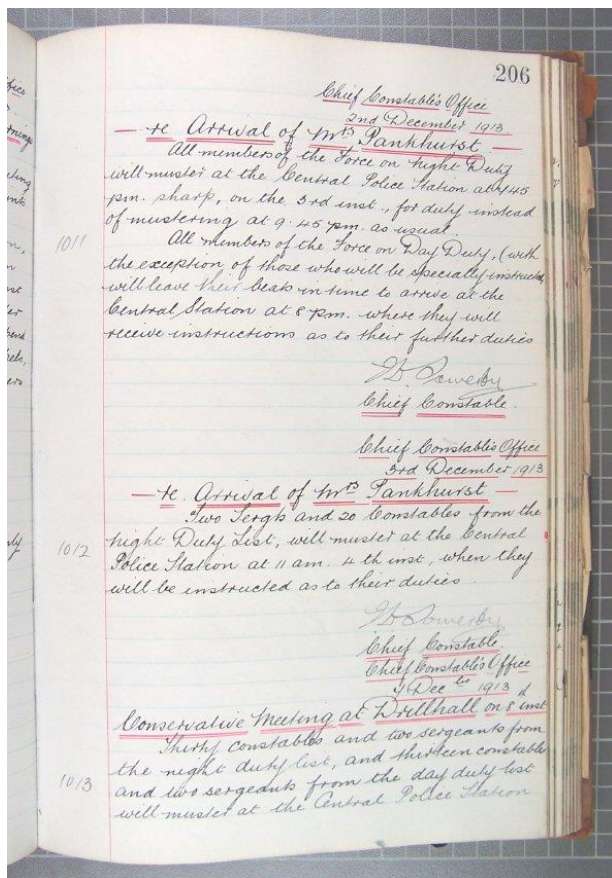 206
Chief Constable's Office
2nd December 1913.
— re Arrival of Mrs Pankhurst —
All members of the Force on Night Duty
will muster at the Central Police Station at
pm. sharp, on the 3rd inst., for duty instead
of mustering at 9.45 pm. as usual.
1011
All members of the Force on Day Duty, (with
the exception of those who will be specially instructed
will leave their beats in time to arrive at the
Central Station at 8 pm. where they will
receive instructions as to their further duties
Chief Constable.
Chief Constable's Office
3rd December 1913
— re. Arrival of Mrs Pankhurst —
Two Sergts and 20 Constables from the
Night Duty List, will muster at the Central
1012
Police Station at 11 am. 4th inst, when they
will be instructed as to their duties.
Chief Constable
Chief Constable's Office
Dec 1913
Conservative Meeting at Drillhall on 8 inst
Thirty constables and two sergeants from
the night duty list, and thirteen constables
1013
and two sergeants from the day duty list
will muster at the Central Police Station